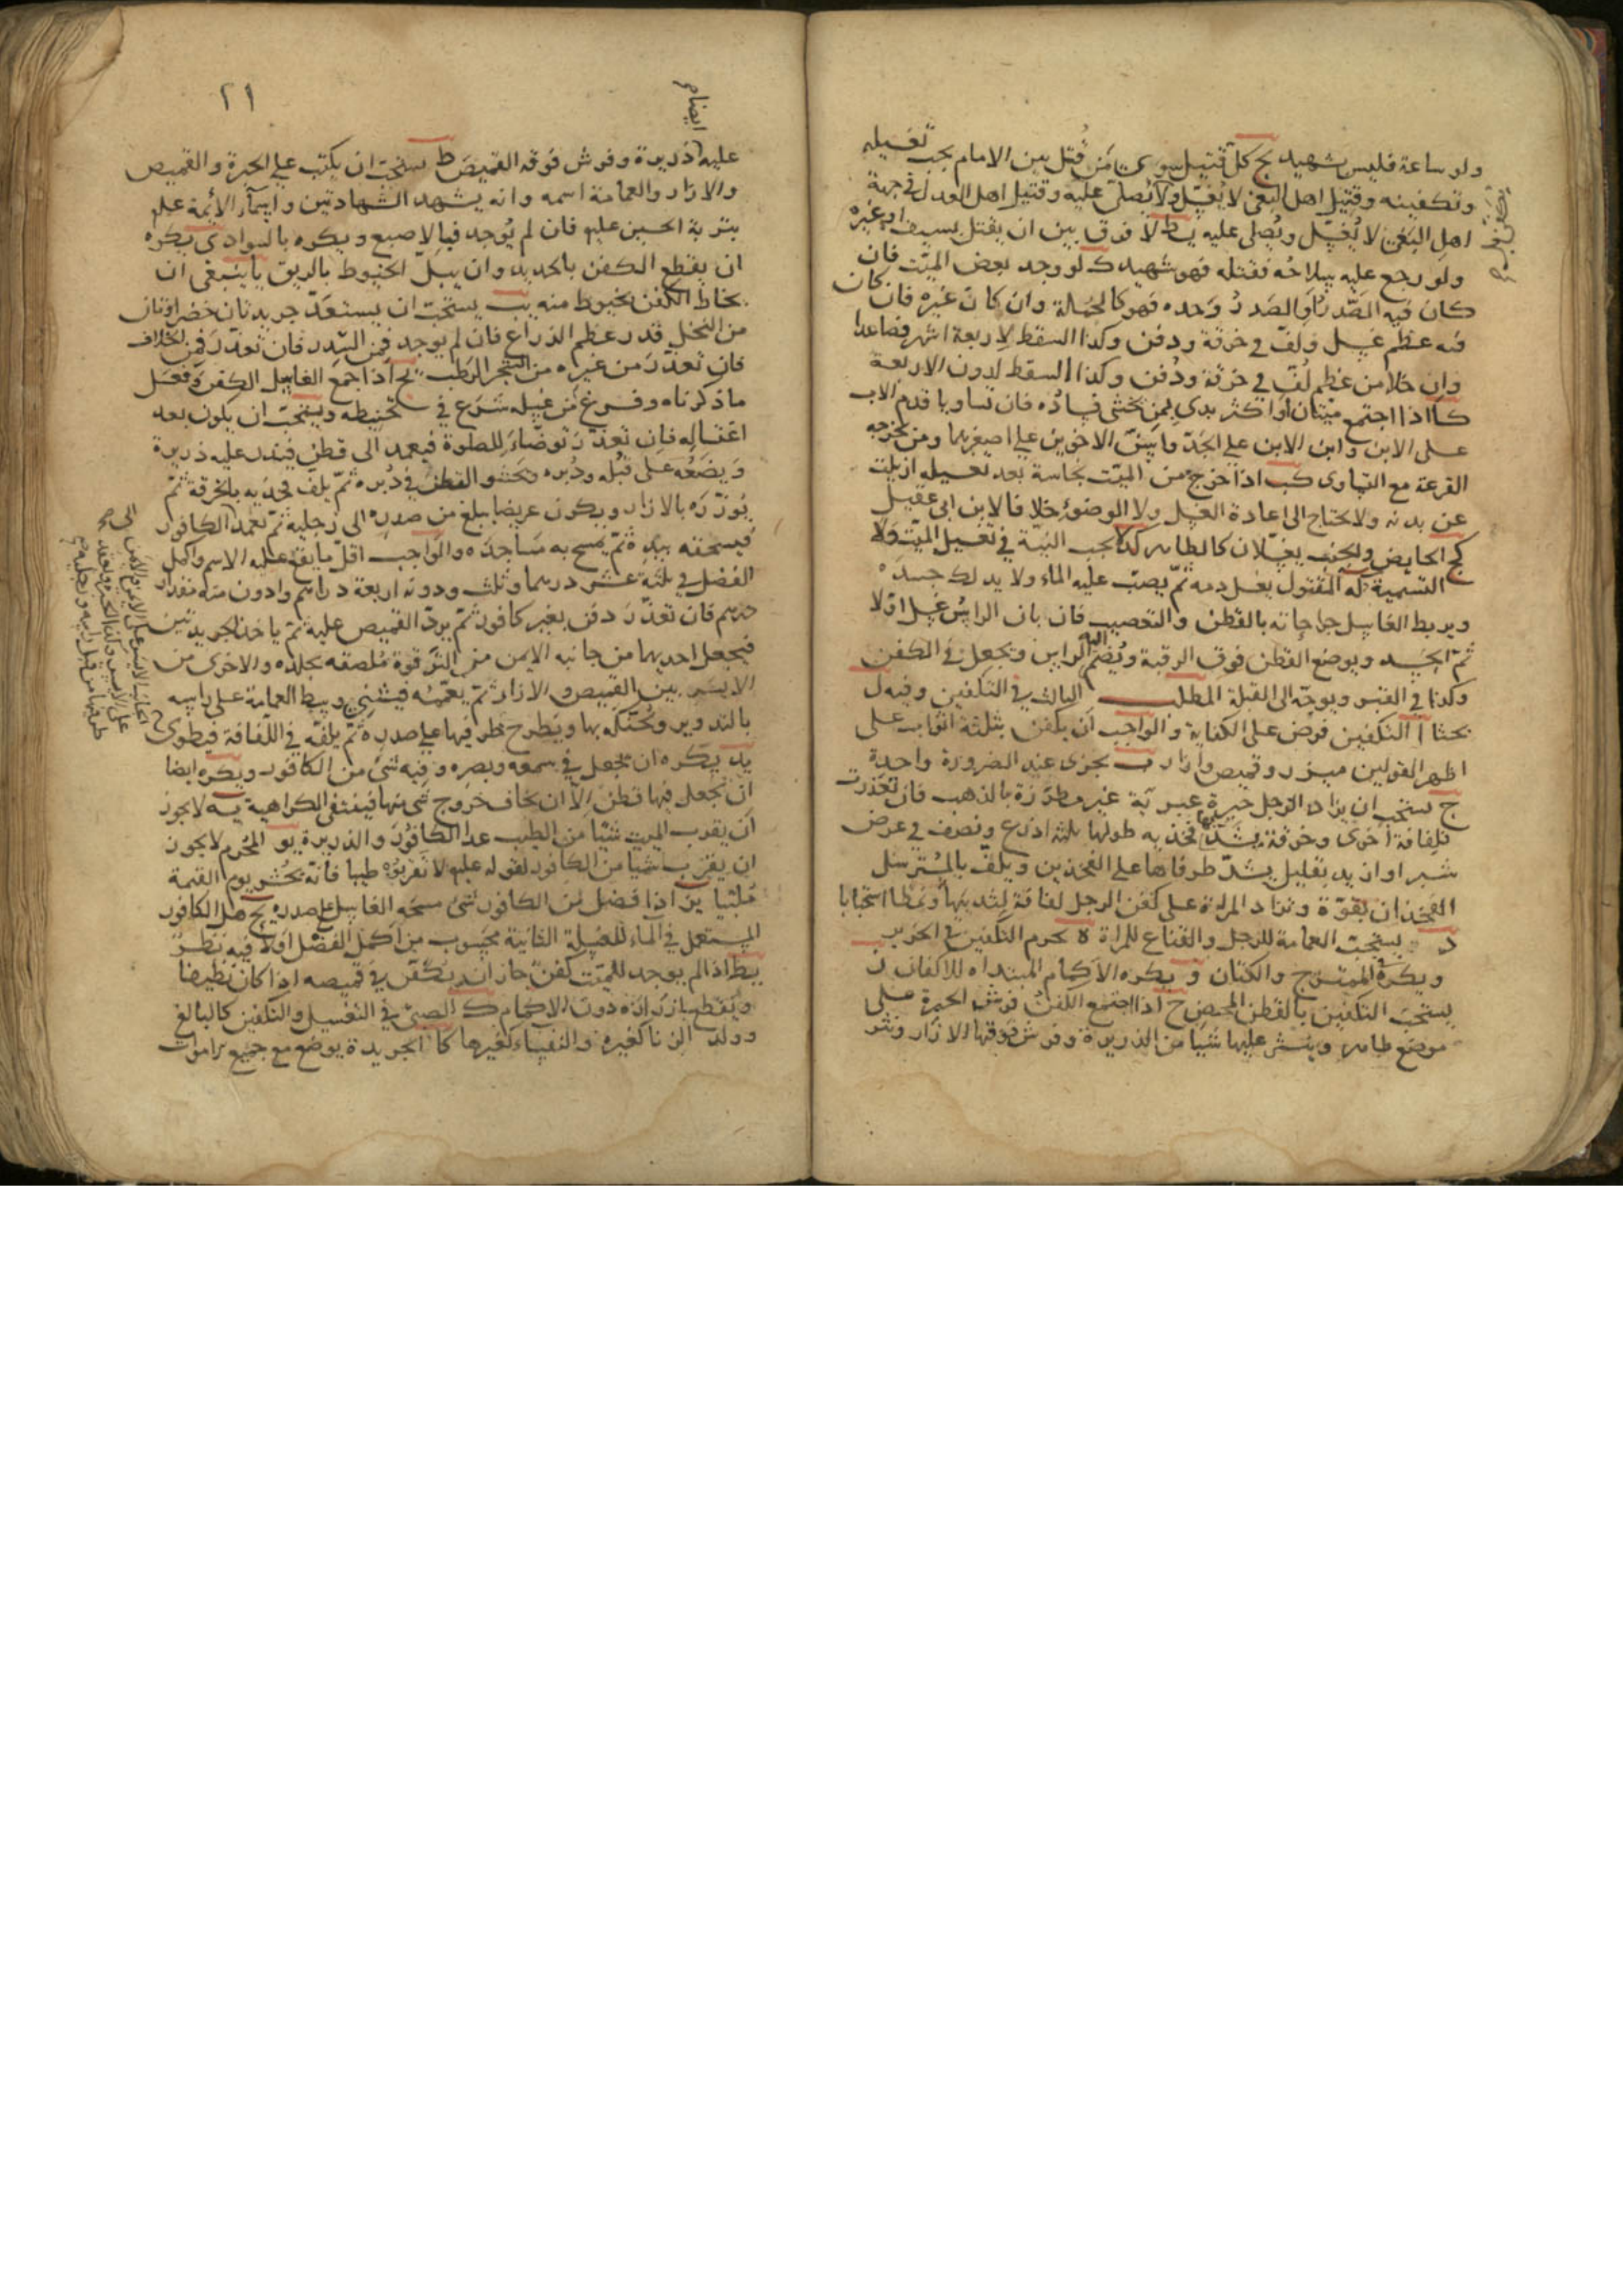 ولو ساعة فليس بشهيد يح كل قتيل سوى من قُتل بين الامام يجب تغسيله
وتكفينه وقتيل اهل البغى لا يُغسّل ولا يُصلّى عليه وقتيل اهل العدل فى جهة
اهل البغى لا يُغسّل ويُصلى عليه يط لا فرق بين ان يقتل بسيف او غيره
ولو رجع عليه سلاحُه فقتله فهو شهيد ك لو وجد بعض الميّت فان
كان فيه الصّدر او الصدرُ وحده فهو كالجملة وان كان غيره فان كان
فيه عظم غسل ولفّ فى خرقة ودفن وكذا السقط لاربعة اشهر فصاعدا
وان خلا من عظم لُفّ فى خرقة ودُفن وكذا السقط لدون الاربعة
كا اذا اجتمع ميّتان او اكثر بدى بمن يخشى فساده فان تساويا قدم الاب
على الابن وابن الابن على الجدّ واسنّ الاخوين على اصغرهما ومن تخرجه
القرعة مع التساوى كب اذا خرج من الميّت نجاسة بعد تغسيله ازيلت
عن بدنه ولا يحتاج الى اعادة الغسل ولا الوضوء خلافا لابن ابى عقيل
كج الحايض والجنب يغسّلان كالطاهر كد لا يجب النيّة فى تغسيل الميّت ولا
التسمية كه المقتول يغسل دمه ثمّ يصبّ عليه الماء ولا يدلك جسده
ويربط الغاسل جراحاته بالقطن والتعصيب فان بان الراسُ غسل اوّلا
ثمّ الجسد ويوضع القطن فوق الرقبة ويُضمّ اليه الراس ويجعل فى الكفن
وكذا فى القبر ويوجّه الى القبلة المطلب الثالث فى التكفين وفيه ل
بحثا ا التكفين فرض على الكفاية والواجب ان يكفن بثلثة اثواب على
اظهر القولين ميزر وقميص وازار ب يجزى عند الضرورة واحدة
ج يستحب ان يزاد الرجل حبرة عبرية غير مطرّزة بالذهب فان تعذرت
فلفافة اخرى وخرقة يشدّ بها فخذيه طولها ثلثة اذرع ونصف فى عرض
شبر او ازيد بقليل يشدّ طرفاها على الفخذين ويلفّ بالمسترسل
الفخذان بقوّة وتزاد المراة على كفن الرجل لفافة لثدييها ونمطا استحبابا
د يستحبّ العمامة للرجل والقناع للمراة ه يحرم التكفين فى الحرير
ويكره الممتزج والكتان و يكره الاكمام المبتداه للاكفان ز
يستحبّ التكفين بالقطن المحض ح اذا اجتمع الكفن فرش الحبرة على
موضع طاهر وينثر عليها شيا من الذريرة وفرش فوقها الازار ونثر
ايضا
٢١
عليه ذريرة وفرش فوقه القميص ط يستحبّ ان يكتب على الحبرة والقميص
والازار والعمامة اسمه وانه يشهد الشهادتين واسمآء الائمة علم
بتربة الحسين علم فان لم يُوجد فبالاصبع ويكره بالسواد ى يكره
ان يقطع الكفن بالحديد وان يبلّ الخيوط بالريق يا ينبغى ان
يخاط الكفن بخيوط منه يب يستحبّ ان يستعدّ جريدتان خضراوتان
من النخل قدر عظم الذراع فان لم يوجد فمن السّدر فان تعذّر فمن الخلاف
فان تعذّر من غيره من الشجر الرّطب يج اذا جمع الغاسل الكفن وفعل
ما ذكرناه وفرغ من غسله شرع فى تحنيطه ويستحبّ ان يكون بعد
اغتساله فان تعذّر توضّاء للصلوة فيعمد الى قطن فيذر عليه ذريرة
ويضعُه على قبُله ودُبره ويحشو القطن فى دُبره ثمّ يلفّ فخذيه بالخرقة ثمّ
يُوزّره بالازار ويكون عريضا يبلغ من صدره الى رجليه ثمّ يعمد الكافور
فيسحقه بيده ثمّ يمسح به مساجده والواجب اقلّ ما يقع عليه الاسم واكمل
الفضل فى ثلثة عشر درهما وثلث ودونه اربعة دراهم وادون منه مقدار
درهم فان تعذّر دفن بغير كافور ثمّ يردّ القميص عليه ثمّ ياخذ الجريدتين
فيجعل احديهما من جانبه الايمن من التّرقوة مُلصقه بجلده والاخرى من
الايسر بين القميص والازار ثمّ يعمّمه فيثنى وسط العمامة على راسه
بالتدوير ويُحنّكه بها ويَطرح طرفيها على صدره ثمّ يلفّه فى اللّفافة فيطوى
يد يكره ان يجعل فى سمعه وبصره وفيه شئ من الكافور ويكره ايضا
ان يجعل فيها قطن الّا ان يخاف خروج شى منها فينتفى الكراهية يه لا يجوز
ان يقرب الميت شيا من الطيب عدا الكافور والذريرة يو المُحرم لا يجوز
ان يقرب شيا من الكافور لقوله علم لا تقربوه طيبا فانّه يُحشر يوم القيمة
ملبّيا يز اذا فضل من الكافور شئ مسحه الغاسل على صدره يح هل الكافور
المستعمل فى الماء للغسلة الثانية محسوب من اكمل الفضل اولا فيه نظر
يط اذا لم يوجد للميّت كفن جاز ان يكفّن فى قميصه اذا كان نظيفا
ويقطع ازراره دون الاكمام ك الصبىّ فى التغسيل والتكفين كالبالغ
وولد الزنا كغيره والنفساء كغيرها كا الجريدة يوضع مع جميع الاموات